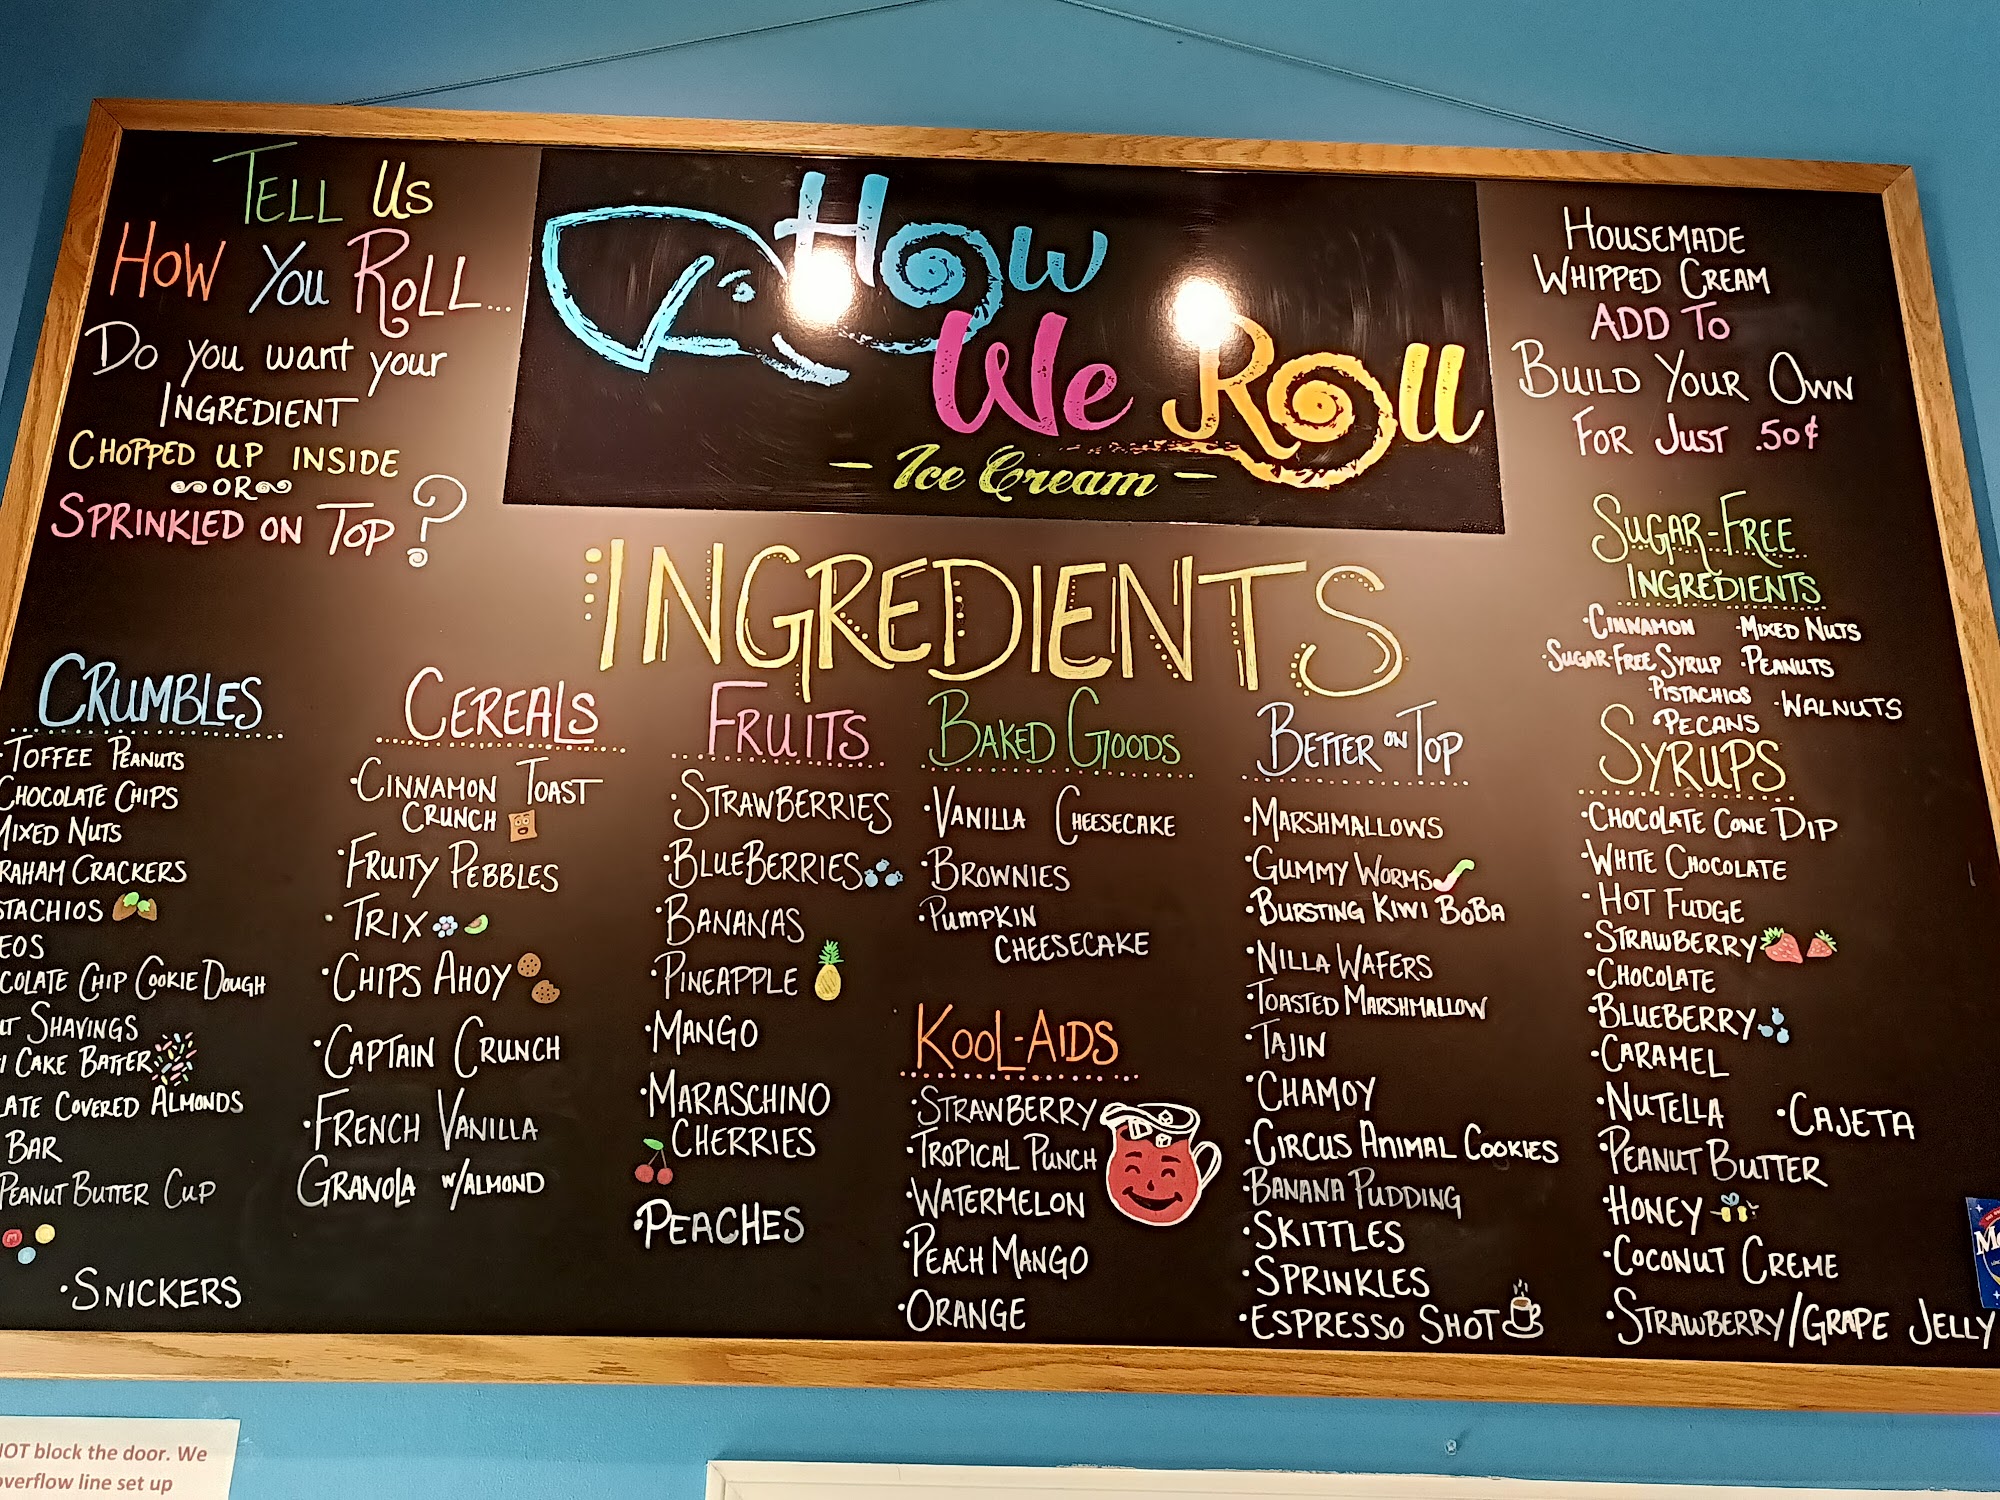 TELL Us
HOW You ROLL...
Do you want your
INGREDIENT
CHOPPED UP INSIDE
OR
SPRINKLED ON TOP?
How
We Roll
- Ice Cream -
HOUSEMADE
WHIPPED CREAM
ADD TO
BUILD YOUR OWN
FOR JUST .50¢
INGREDIENTS
CRUMBLES
·TOFFEE PEANUTS
CHOCOLATE CHIPS
MIXED NUTS
RAHAM CRACKERS
STACHIOS
EOS
COLATE CHIP COOKIE DOUGH
SHAVINGS
CAKE BATTER
LATE COVERED ALMONDS
BAR
PEANUT BUTTER CUP
·SNICKERS
CEREALS
·CINNAMON TOAST
CRUNCH
·FRUITY PEBBLES
·TRIX
·CHIPS AHOY
·CAPTAIN CRUNCH
·FRENCH VANILLA
GRANOLA W/ALMOND
FRUITS
·STRAWBERRIES
·BLUEBERRIES
·BANANAS
·PINEAPPLE
·MANGO
·MARASCHINO
CHERRIES
·PEACHES
BAKED GOODS
·VANILLA CHEESECAKE
·BROWNIES
·PUMPKIN
CHEESECAKE
KOOL-AIDS
·STRAWBERRY
·TROPICAL PUNCH
·WATERMELON
·PEACH MANGO
·ORANGE
BETTER ON TOP
·MARSHMALLOWS
·GUMMY WORMS
·BURSTING KIWI BOBA
·NILLA WAFERS
·TOASTED MARSHMALLOW
·TAJIN
·CHAMOY
·CIRCUS ANIMAL COOKIES
·BANANA PUDDING
·SKITTLES
·SPRINKLES
·ESPRESSO SHOT
SUGAR-FREE
INGREDIENTS
·CINNAMON ·MIXED NUTS
·SUGAR-FREE SYRUP ·PEANUTS
·PISTACHIOS ·WALNUTS
PECANS
SYRUPS
·CHOCOLATE CONE DIP
·WHITE CHOCOLATE
·HOT FUDGE
·STRAWBERRY
·CHOCOLATE
·BLUEBERRY
·CARAMEL
·NUTELLA ·CAJETA
·PEANUT BUTTER
·HONEY
·COCONUT CREME
·STRAWBERRY/GRAPE JELLY
NOT block the door. We
overflow line set up